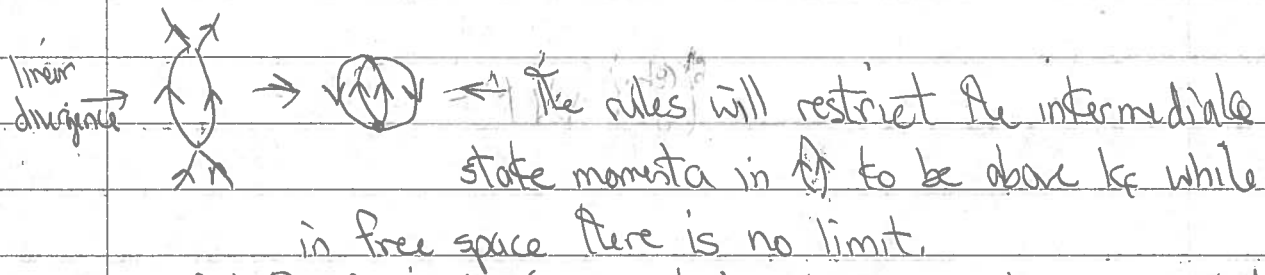 linear
divergence → → ← The rules will restrict the intermediate
state momenta in to be above kF while
in free space there is no limit.